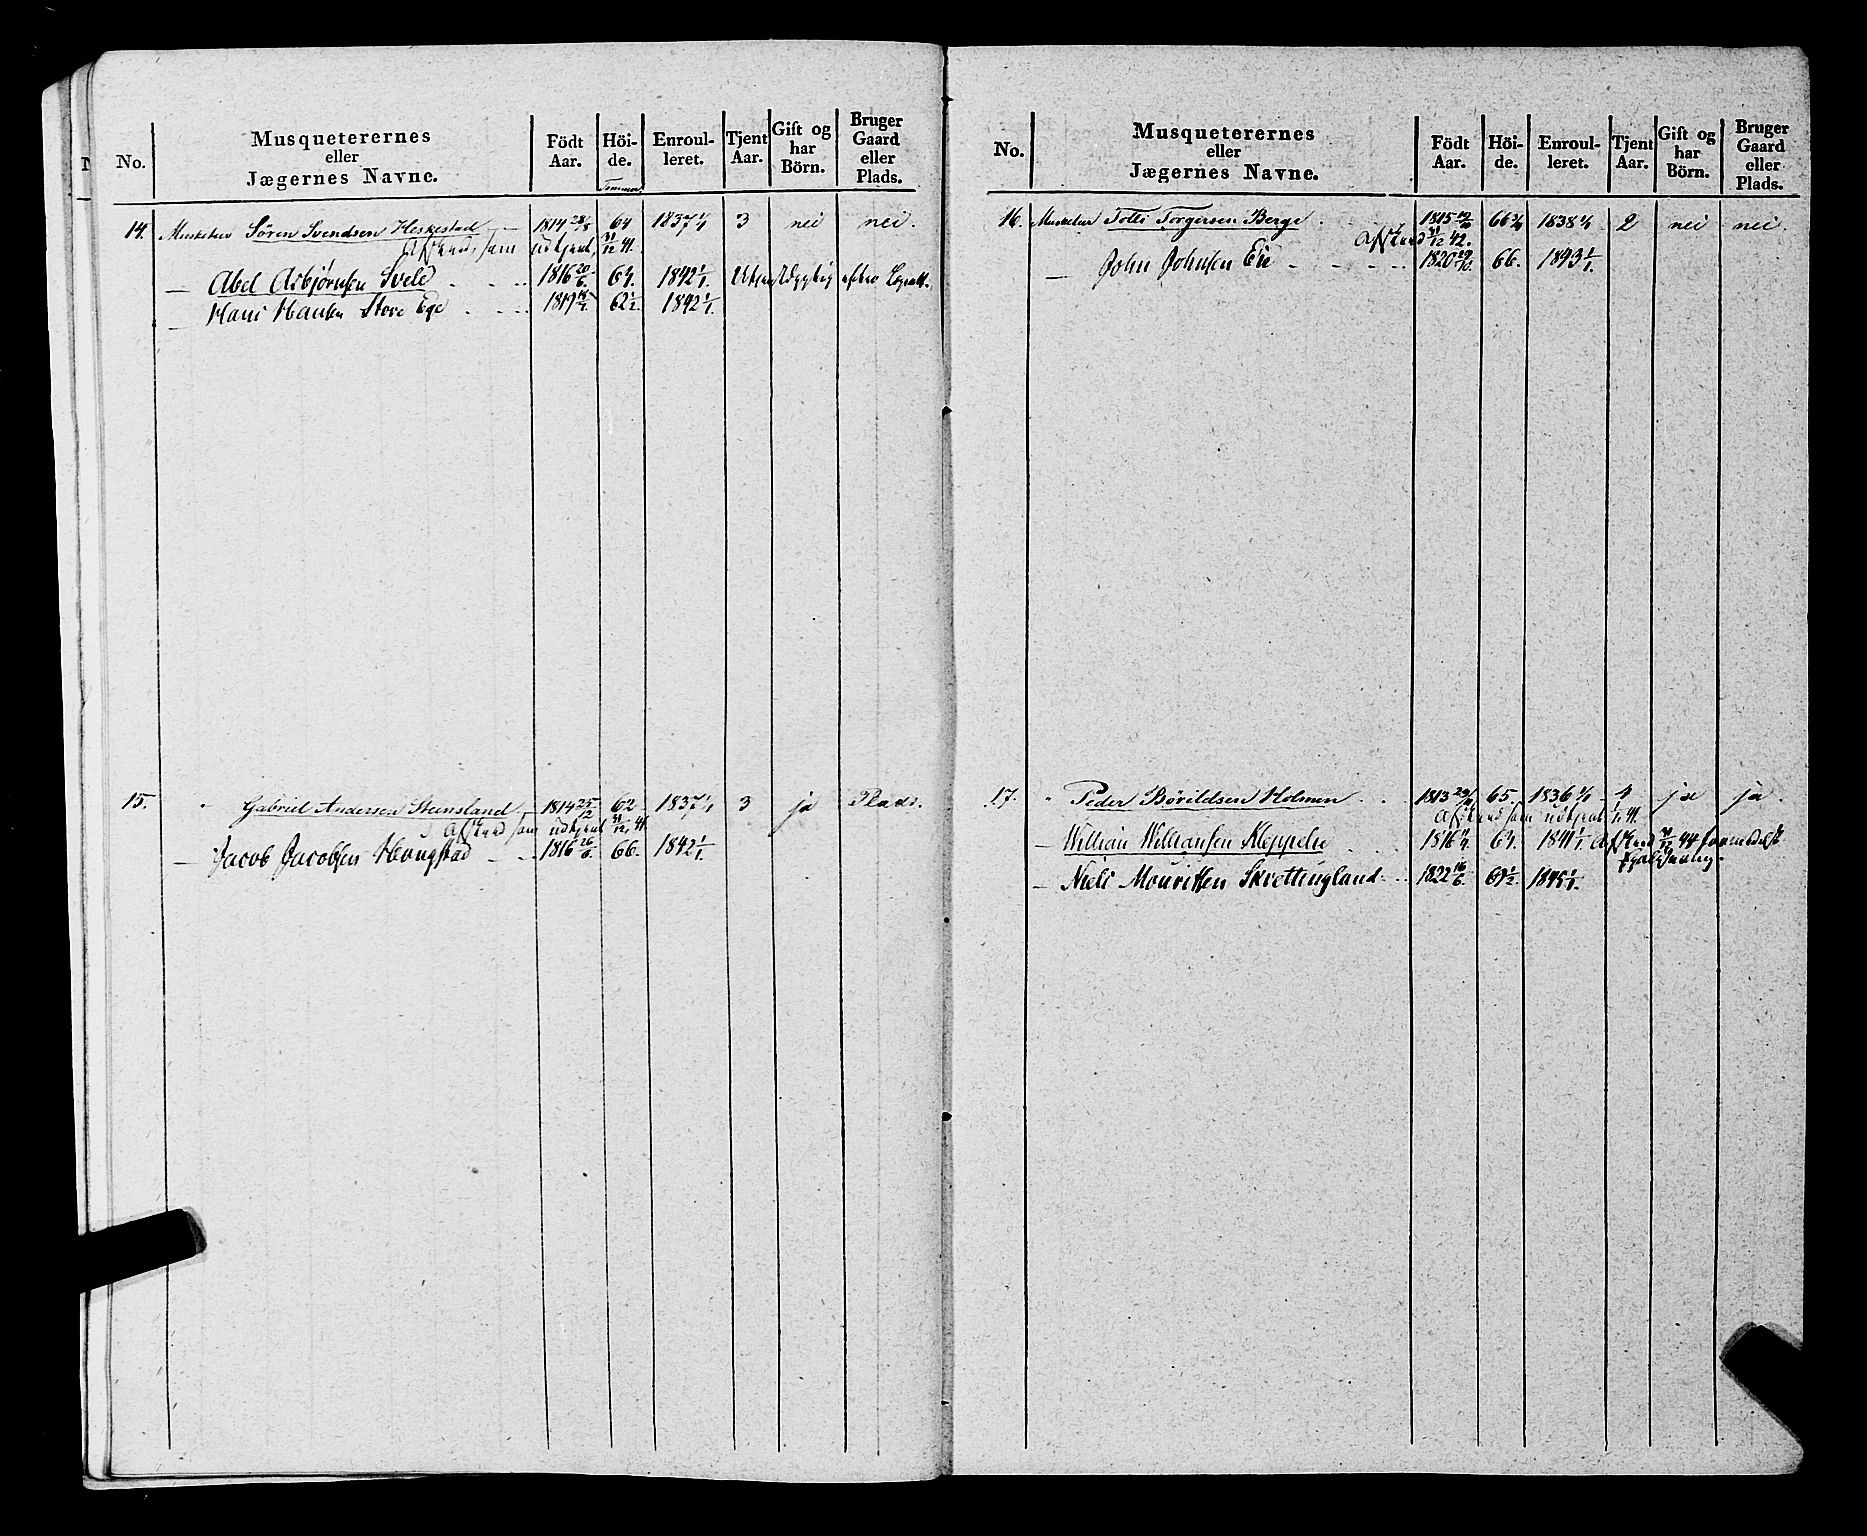 No.
Musqueterernes
eller
Jægernes Navne.
Födt
Aar.
Höi-
de.
Tommer
Enroul-
leret.
Tjent
Aar.
Gift og
har
Börn.
Bruger
Gaard
eller
Plads.
14. Musketeer Sören Svendsen Heskestad 1814 28/8 64 1837 1/1 3 nei nei.
Afskeed som udtjent, 31/12 41.
— Abel Asbjørnsen Sveld 1816 20/6. 64. 1842 1/1. efter
— Hans Hansen Store Ege 1819 62 1/2. 1842 1/1.
15. " Gabriel Andersen Steensland 1814 25/12 62 1837 1/1 3 ja Plads.
Afskeed som udtjent 31/12 41.
— Jacob Jacobsen Hougstad 1816 26/6. 66. 1842 1/1.
No.
Musqueterernes
eller
Jægernes Navne.
Födt
Aar.
Höi-
de.
Enroul-
leret.
Tjent
Aar.
Gift og
har
Börn.
Bruger
Gaard
eller
Plads.
16. Musketeer Tolli Torgersen Berge 1815 66 1838 1/1 2 nei nei.
Afskeed 31/12 42.
— John Johnsen Eie 1820 29/10. 66. 1843 1/1.
17. " Peder Börildsen Holmen 1813 65. 1836 1/1 4 ja ja.
Afskeed som udtjent 1/1 41.
— Willian Williansen Kleppelie 1816 64. 1841 1/1 Afskeed 31/12 44 formedelst
— Niels Mouritsen Skrettingland 1822 16/6. 69 1/2. 1845 1/1.